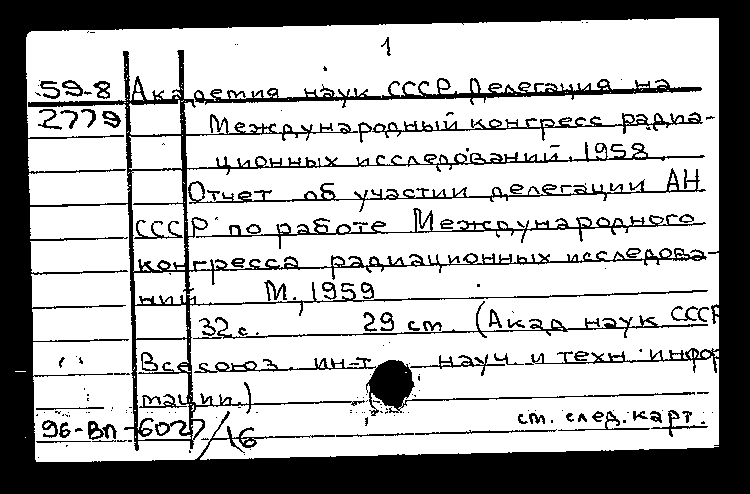 1
59-8 Академия наук СССР. Делегация на
2779 Международный конгресс радиа-
ционных исследований. 1958.
Отчет об участии делегации АН
СССР по работе Международного
конгресса радиационных исследова-
ний. М., 1959
32 с. 29 см. (Акад наук СССР
Всесоюз. ин-т науч. и техн. инфор
мации.)
96-Вп-6027/16 см. след. карт.